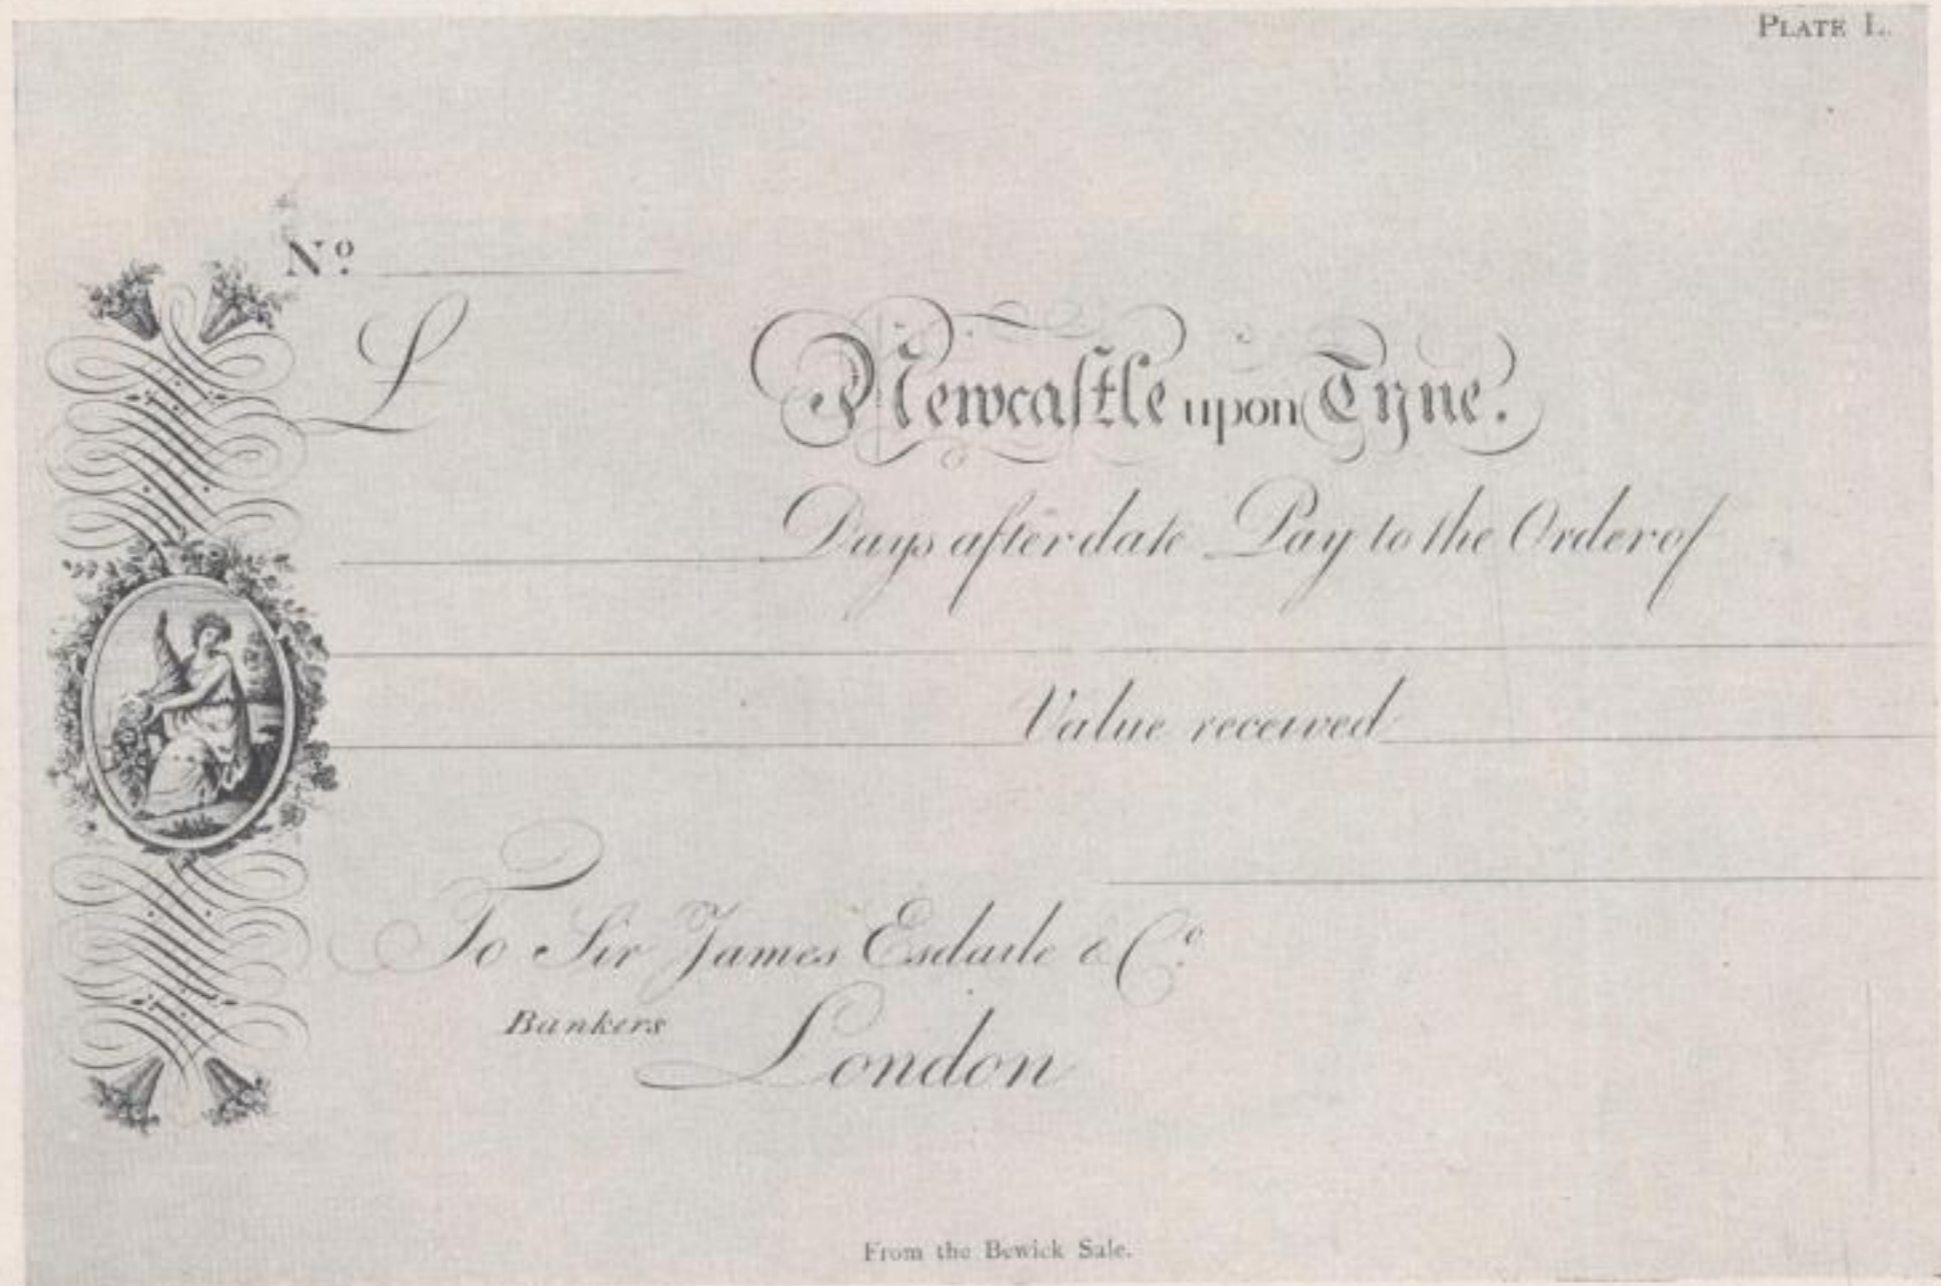 PLATE L.
Nº
£
Newcaſtle upon Tyne.
Days after date Pay to the Order of
Value received
To Sir James Esdaile & Cº.
Bankers
London
From the Bewick Sale.